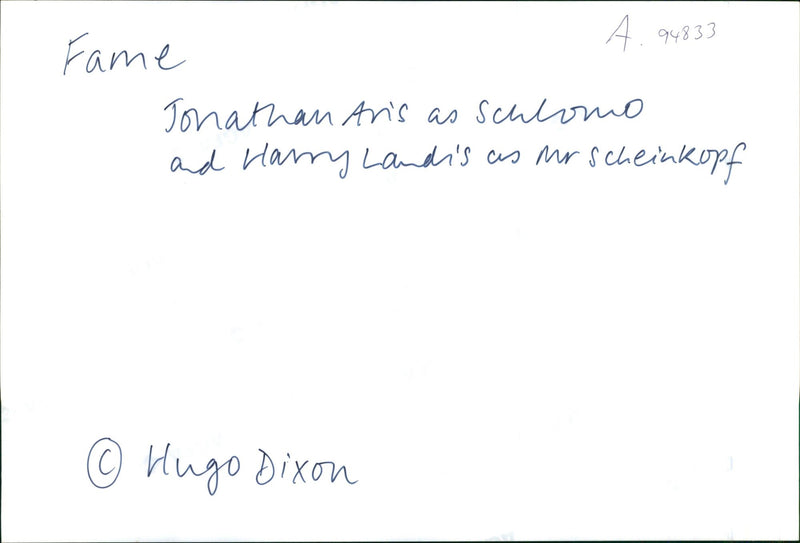 A. 94833
Fame
Jonathan Aris as Schlomo
and Harry Landis as Mr Scheinkopf
© Hugo Dixon